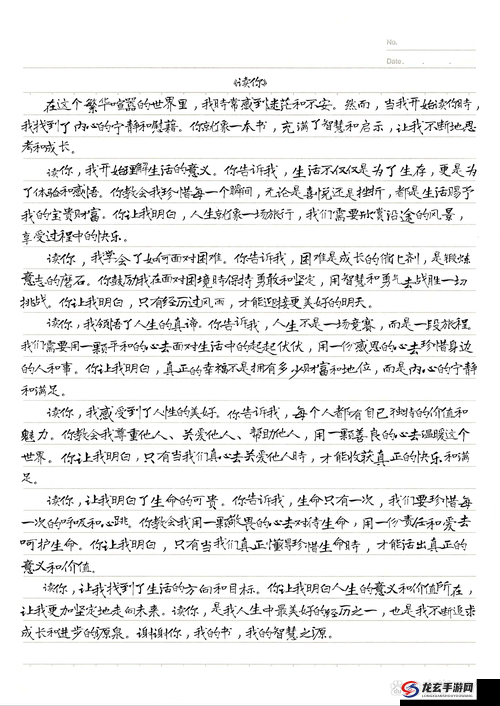 No.
Date.
《读你》
在这个繁华喧嚣的世界里，我时常感到迷茫和不安。然而，当我开始读你时，
我找到了内心的宁静和慰藉。你就像一本书，充满了智慧和启示，让我不断地思
考和成长。
读你，我开始理解生活的意义。你告诉我，生活不仅仅是为了生存，更是为
了体验和感悟。你教会我珍惜每一个瞬间，无论是喜悦还是挫折，都是生活赐予
我的宝贵财富。你让我明白，人生就像一场旅行，我们需要欣赏沿途的风景，
享受过程中的快乐。
读你，我学会了如何面对困难。你告诉我，困难是成长的催化剂，是锻炼
意志的磨石。你鼓励我在面对困境时保持勇敢和坚定，用智慧和勇气去战胜一切
挑战。你让我明白，只有经历过风雨，才能迎接更美好的明天。
读你，我领悟了人生的真谛。你告诉我，人生不是一场竞赛，而是一段旅程。
我们需要用一颗平和的心去面对生活中的起起伏伏，用一份感恩的心去珍惜身边
的人和事。你让我明白，真正的幸福不是拥有多少财富和地位，而是内心的宁静
和满足。
读你，我感受到了人性的美好。你告诉我，每个人都有自己独特的价值和
魅力。你教会我尊重他人、关爱他人、帮助他人，用一颗善良的心去温暖这个
世界。你让我明白，只有当我们真心去关爱他人时，才能收获真正的快乐和满
足。
读你，让我明白了生命的可贵。你告诉我，生命只有一次，我们要珍惜每
一次的呼吸和心跳。你教会我用一颗敬畏的心去对待生命，用一份责任和爱去
呵护生命。你让我明白，只有当我们真正懂得珍惜生命时，才能活出真正的
意义和价值。
读你，让我找到了生活的方向和目标。你让我明白人生的意义和价值所在，
让我更加坚定地走向未来。读你，是我人生中最美好的经历之一，也是我不断追求
成长和进步的源泉。谢谢你，我的书，我的智慧之源。
龙玄手游网